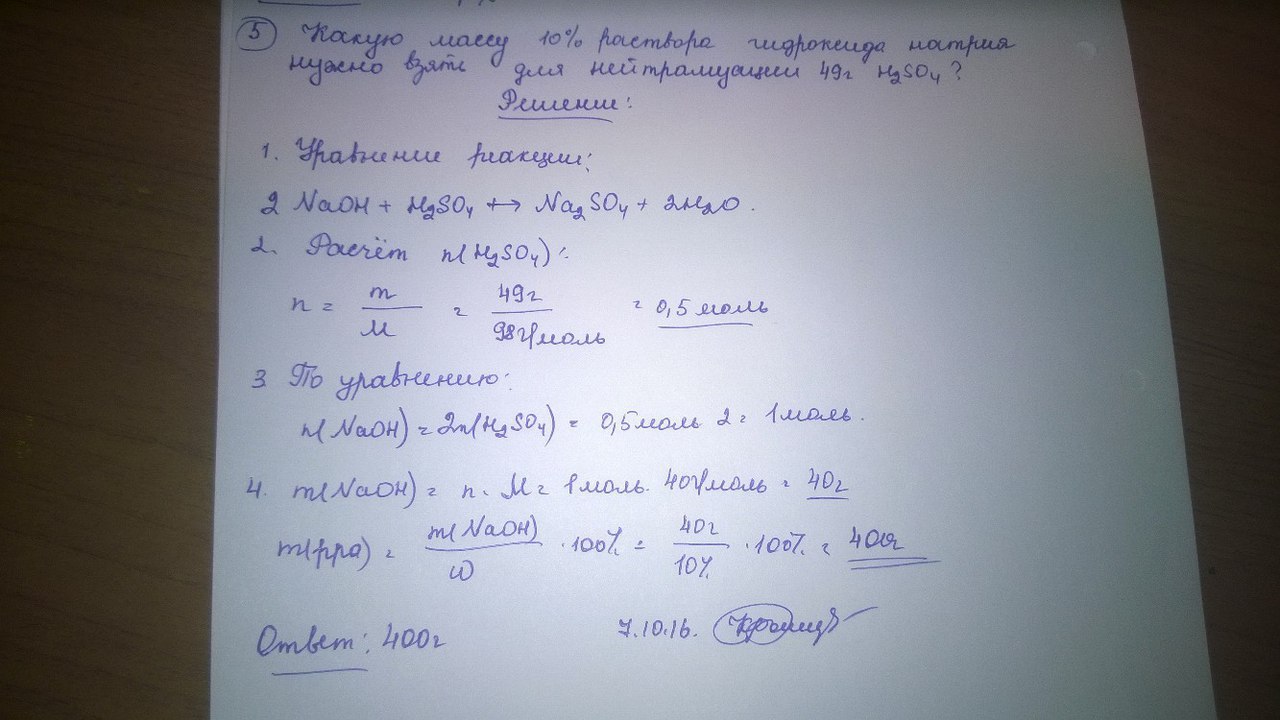 5 Какую массу 10% раствора гидроксида натрия
нужно взять для нейтрализации 49г H₂SO₄?
Решение:
1. Уравнение реакции:
2 NaOH + H₂SO₄ ↔ Na₂SO₄ + 2H₂O.
2. Расчёт n(H₂SO₄):
n = m/M = 49г/98г/моль = 0,5 моль
3 По уравнению:
n(NaOH) = 2n(H₂SO₄) = 0,5моль 2 = 1моль.
4. m(NaOH) = n · M = 1моль · 40г/моль = 40г
m(рра) = m(NaOH)/ω · 100% = 40г/10% · 100% = 400г
Ответ: 400г
7.10.16.